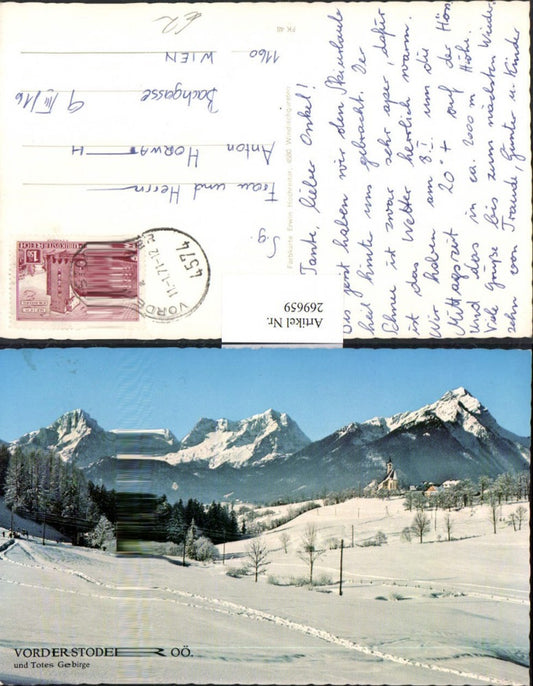 Tante, lieber Onkel!
Bis jetzt haben wir den Skiurlaub
heil hinter uns gebracht. Der
Schnee ist zwar sehr aper, dafür
ist das Wetter herrlich warm.
Wir haben am 8. I. um die
Mittagszeit 20° + auf der Höss
und das in ca. 2000 m Höhe.
Viele Grüße bis zum nächsten Wieder-
sehn von Traude, Günter u. Kinder
FK 48
Farbkarte Erwin Hochreiter, 4580 Windischgarsten
Sg.
Frau und Herrn
Anton HORWATH
Bachgasse 9/III/16
1160 WIEN
4574
VORDE
11.-1.71-12
Artikel Nr.
269659
VORDERSTODER OÖ.
und Totes Gebirge